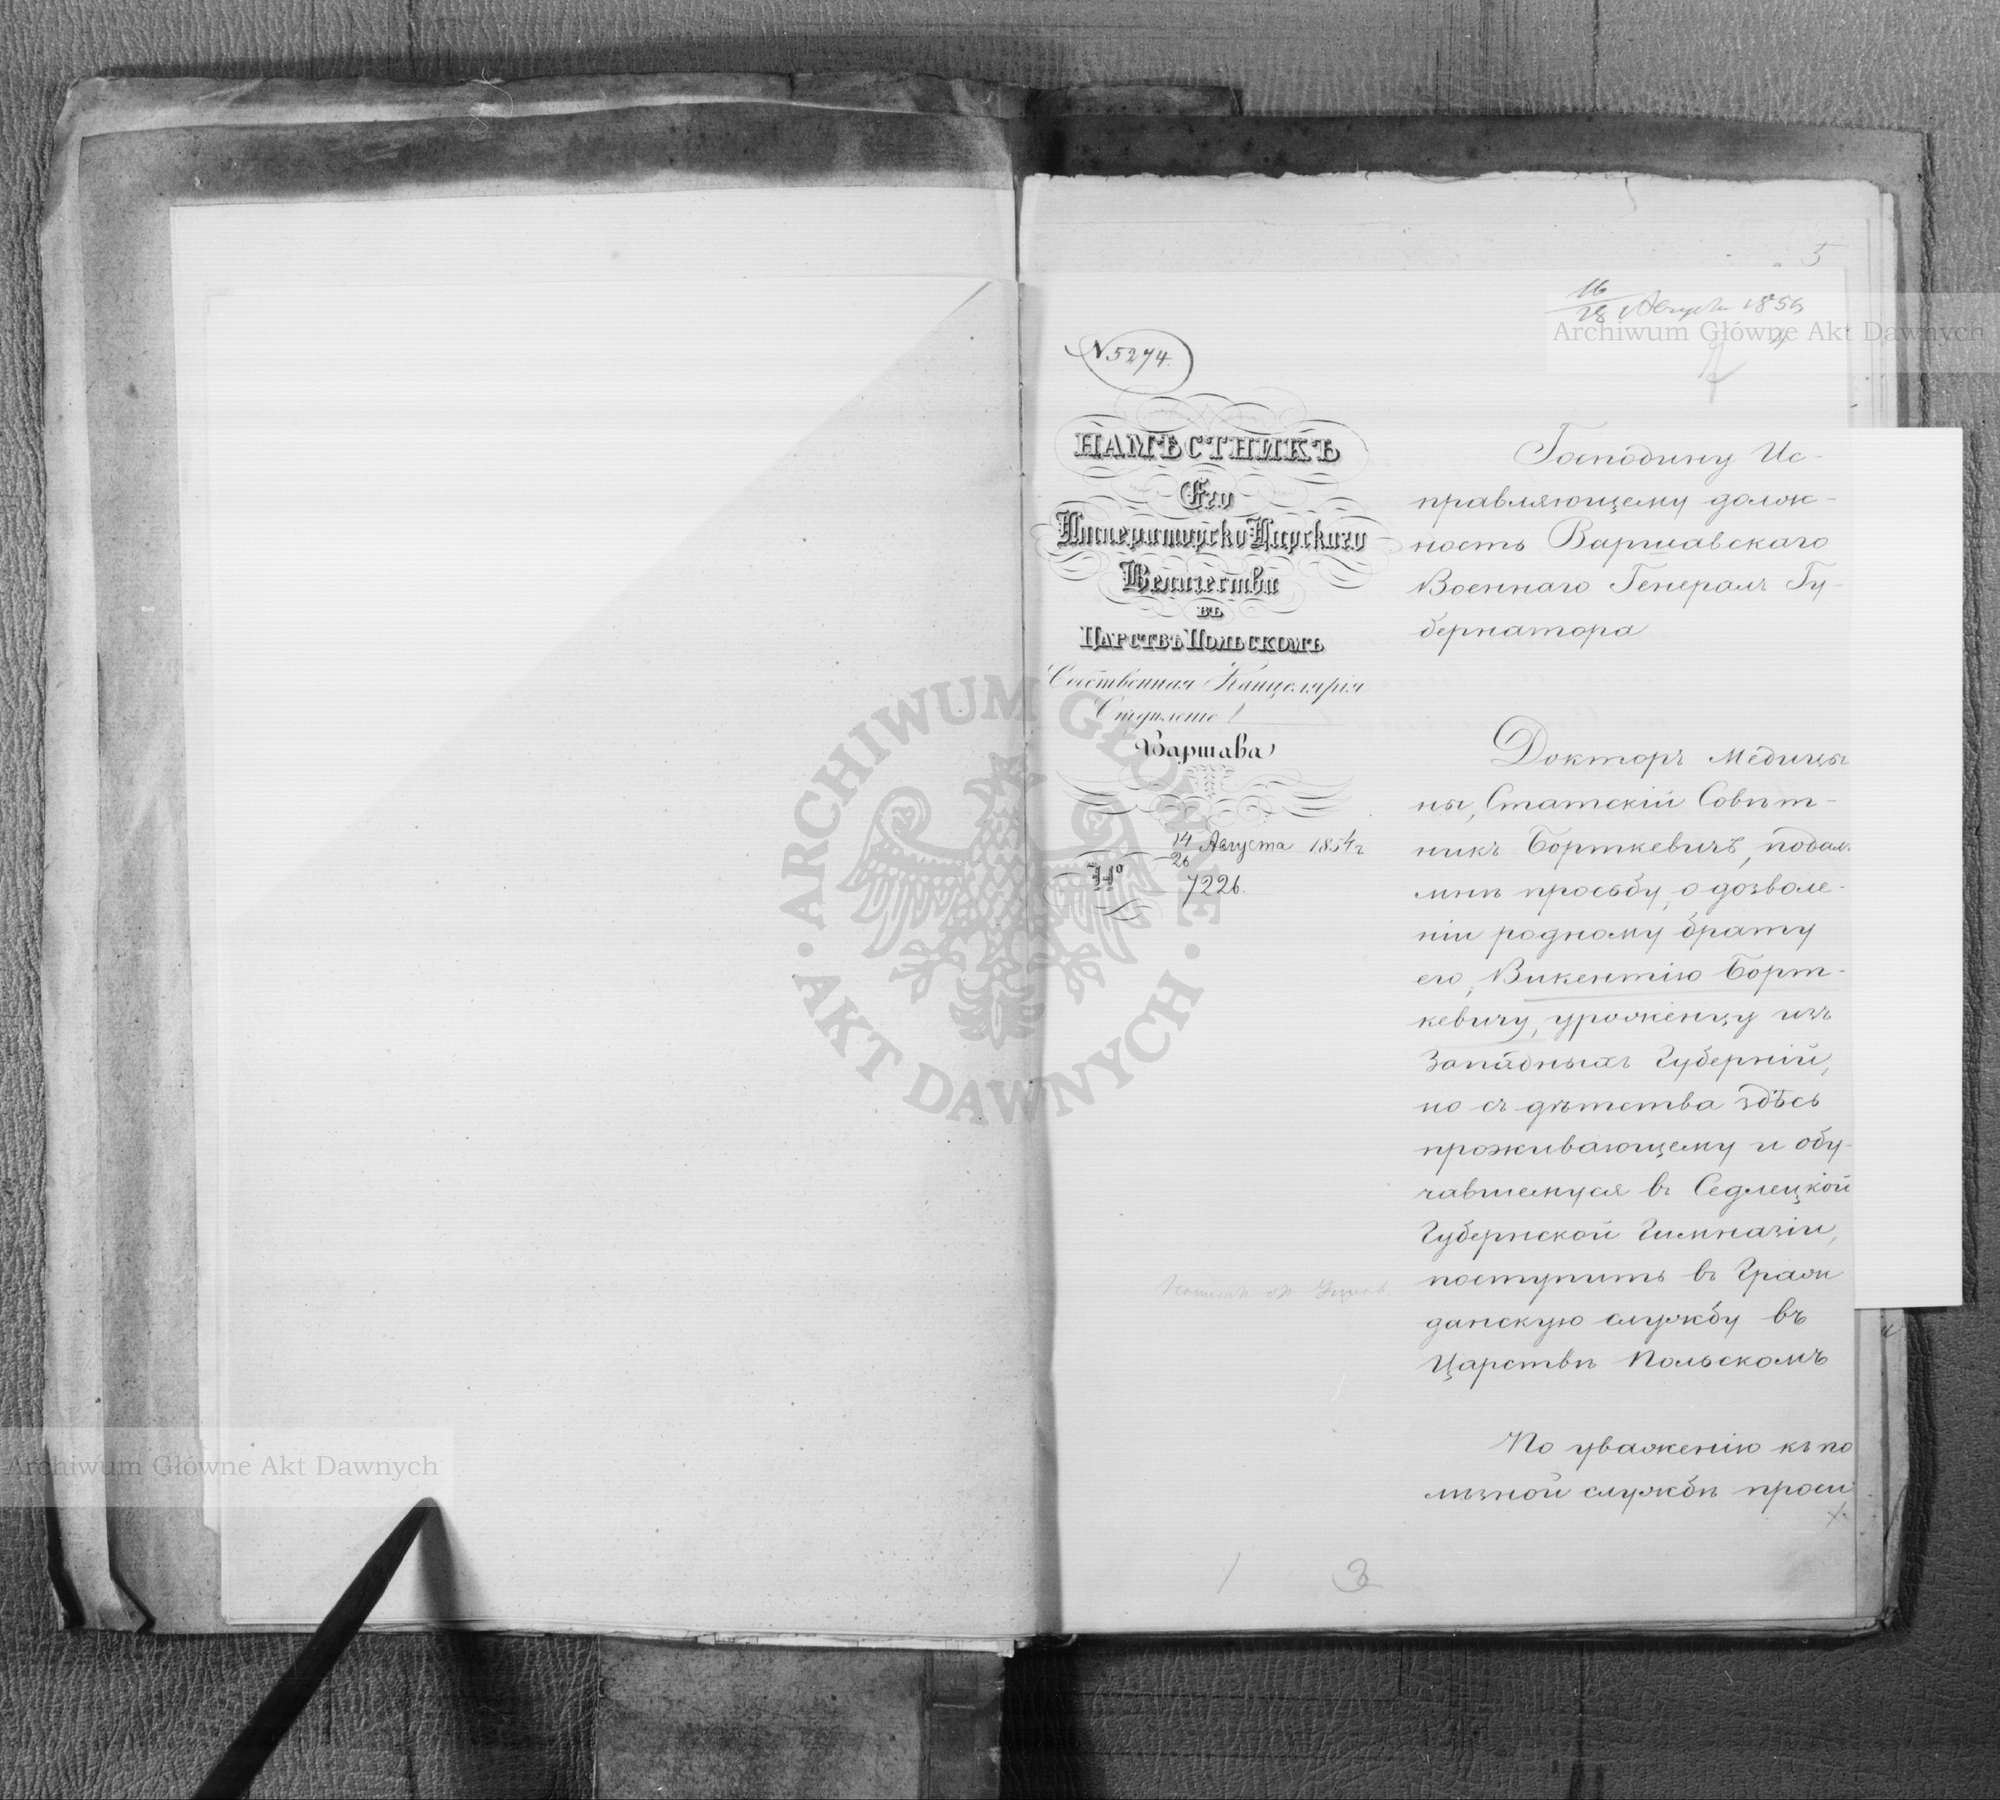 5
16/28 Августа 1854
Archiwum Główne Akt Dawnych
N 5274.
НАМѢСТНИКЪ
Его
Императорско Царскаго
Величества
ВЪ
ЦАРСТВѢ ПОЛЬСКОМЪ
Собственная Канцелярія
Отдѣление I
Варшава
14/26 Августа 1854 г
№ 7226.
Господину Ис-
правляющему долж-
ность Варшавскаго
Военнаго Генералъ Гу-
бернатора
Докторъ Медицы
ны, Статскій Совѣт-
никъ Борткевичъ, подал
мнѣ просьбу, о дозволе-
ніи родному брату
его, Викентію Борт-
кевичу, уроженцу изъ
Западныхъ Губерній,
но съ дѣтства здѣсь
проживающему и обу-
чавшемуся въ Седлецкой
Губернской Гимназіи,
поступить въ Граж
данскую службу въ
Царствѣ Польскомъ
По уваженію къ по
лезной службѣ проси
1 3
ARCHIWUM GŁÓWNE · AKT DAWNYCH ·
Archiwum Główne Akt Dawnych